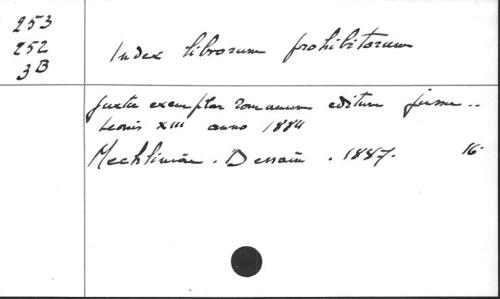 253
252
3B
Index librorum prohibitorum
juxta exemplar romanum editum jussu ..
Leonis XIII anno 1884
Mechliniae . Dessain . 1887. 16º